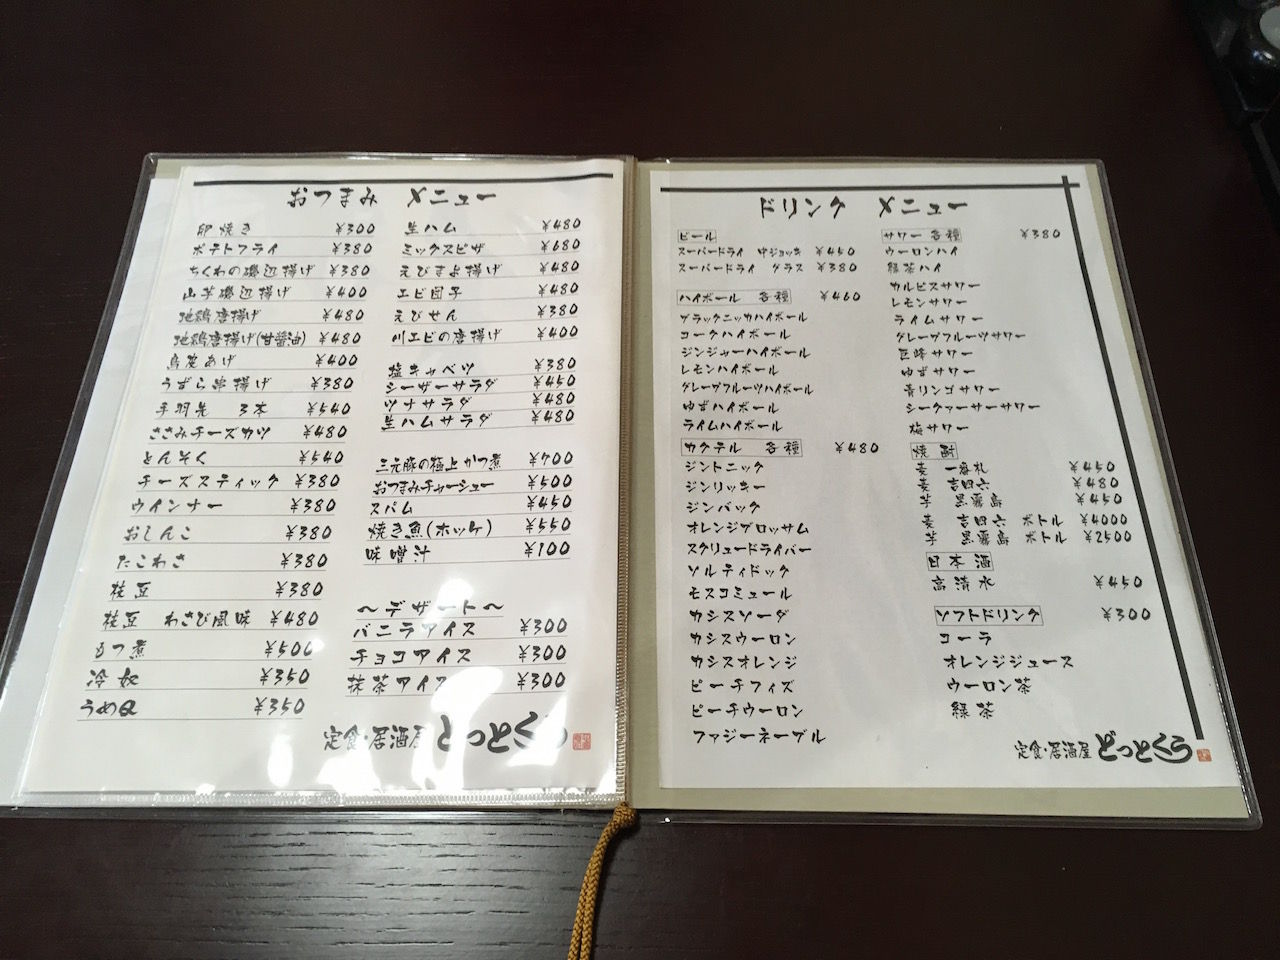 おつまみ メニュー
卵焼き ¥300
ポテトフライ ¥380
ちくわの磯辺揚げ ¥380
山芋磯辺揚げ ¥400
地鶏唐揚げ ¥480
地鶏唐揚げ(甘醤油) ¥480
鳥皮あげ ¥400
うずら串揚げ ¥380
手羽先 3本 ¥540
ささみチーズカツ ¥480
とんそく ¥540
チーズスティック ¥380
ウインナー ¥380
おしんこ ¥380
たこわさ ¥380
枝豆 ¥380
枝豆 わさび風味 ¥480
もつ煮 ¥500
冷奴 ¥350
うめQ ¥350
生ハム ¥480
ミックスピザ ¥680
えびまよ揚げ ¥480
エビ団子 ¥480
えびせん ¥380
川エビの唐揚げ ¥400
塩キャベツ ¥380
シーザーサラダ ¥450
ツナサラダ ¥480
生ハムサラダ ¥480
三元豚の極上かつ煮 ¥700
おつまみチャーシュー ¥500
スパム ¥450
焼き魚(ホッケ) ¥550
味噌汁 ¥100
〜デザート〜
バニラアイス ¥300
チョコアイス ¥300
抹茶アイス ¥300
定食・居酒屋 どっとくう
ドリンク メニュー
ビール
スーパードライ 中ジョッキ ¥460
スーパードライ グラス ¥380
ハイボール 各種 ¥460
ブラックニッカハイボール
コークハイボール
ジンジャーハイボール
レモンハイボール
グレープフルーツハイボール
ゆずハイボール
ライムハイボール
カクテル 各種 ¥480
ジントニック
ジンリッキー
ジンバック
オレンジブロッサム
スクリュードライバー
ソルティドック
モスコミュール
カシスソーダ
カシスウーロン
カシスオレンジ
ピーチフィズ
ピーチウーロン
ファジーネーブル
サワー各種 ¥380
ウーロンハイ
緑茶ハイ
カルピスサワー
レモンサワー
ライムサワー
グレープフルーツサワー
巨峰サワー
ゆずサワー
青リンゴサワー
シークァーサーサワー
梅サワー
焼酎
麦 一番札 ¥450
麦 吉四六 ¥480
芋 黒霧島 ¥450
麦 吉四六 ボトル ¥4000
芋 黒霧島 ボトル ¥2500
日本酒
高清水 ¥450
ソフトドリンク ¥300
コーラ
オレンジジュース
ウーロン茶
緑茶
定食・居酒屋 どっとくう